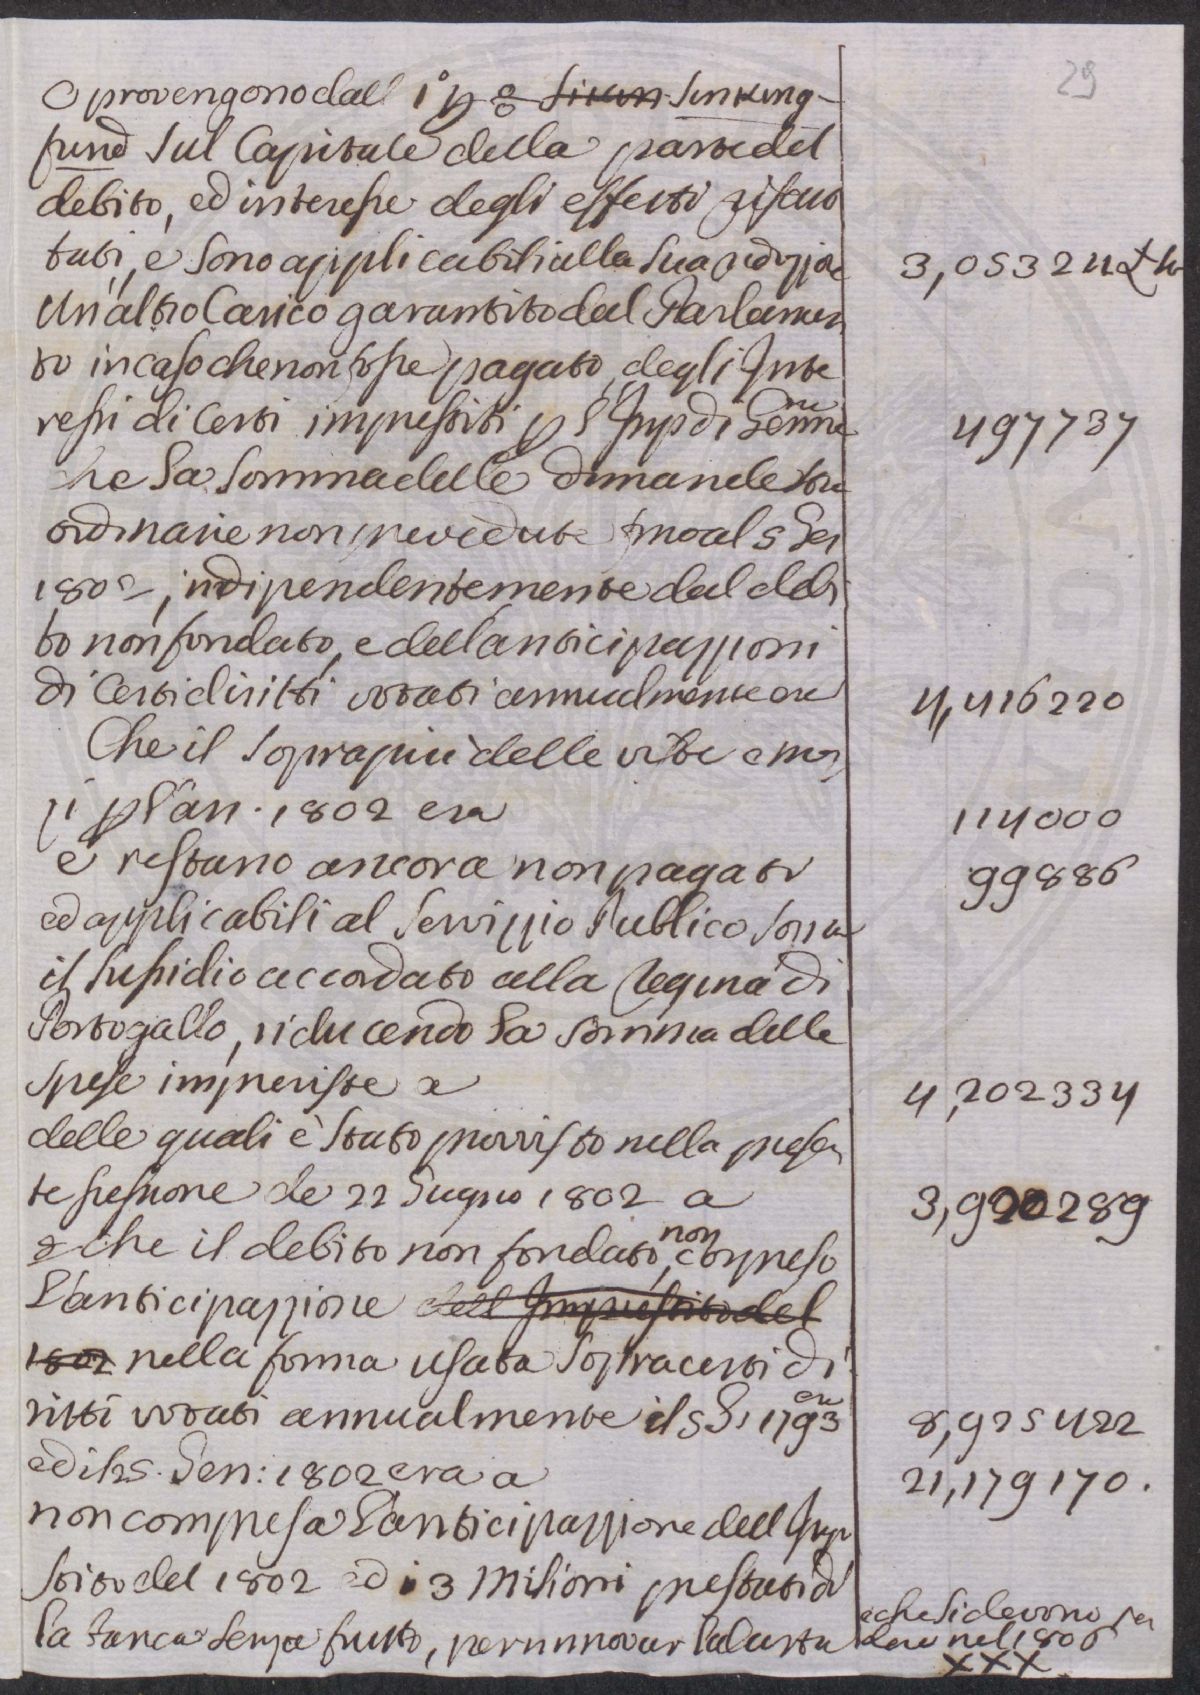 29
O provengono dall 1° p % Sikin Sinking-
fund sul Capitale della parte del
debito, ed interesse degli effetti riscat
tati, e sono applicabili alla sua riduzione 3,053244
Un altro Carico garantito dal Parlamen
to in caso che non fosse pagato, degli Inte
ressi di Certi imprestiti p l'Imp di Germe 497737
che la somma delle dimande stra
ordinarie non prevedute fino al 5 Gen
1802, indipendentemente dal debi
to non fondato, e dell anticipazzioni
di Certi diritti votati annualmente era 4,416220
Che il soprapiù delle vite e mez
zi p l'an. 1802 era 114000
e restano ancora non pagati 99886
ed applicabili al Servizzio Publico sopra
il sussidio accordato alla Regina di
Portogallo, riducendo la somma delle
spese impreviste a 4,202334
delle quali è stato provvisto nella presen
te sessione de 22 Giugno 1802 a 3,920289
e che il debito non fondato, non compreso
l'anticipazzione dell Imprestito del
1802 nella forma usata sopra certi di
ritti votati annualmente il 5 Gen 1793 era 8,925422
ed il 5. Gen: 1802 era a 21,179170.
non compresa l'anticipazzione dell Impr
stito del 1802 ed i 3 Milioni prestati da
la Banca senza frutto, per rinnovar la Carta e che si devono
nel 1806
XXX